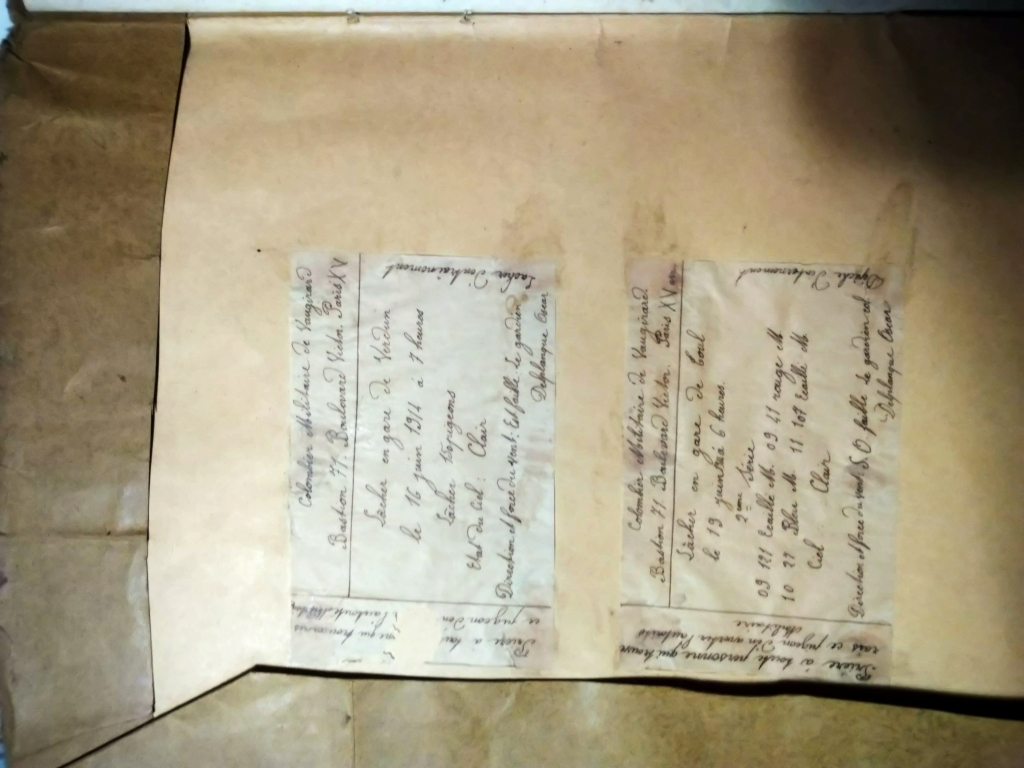 Colombier Militaire de Vaugirard
Bastion 71. Boulevard Victor. Paris XV
Lâcher en gare de Verdun
le 16 juin 1914 à 7 heures
Lâcher pigeons
Etat du Ciel : Clair
Direction et force du vent : Est faible Le gardien
Deplanque Oscar
Lacher d'entrainement
Prière à
ce pigeon d'en
Colombier Militaire de Vaugirard
Bastion 71. Boulevard Victor. Paris XV eme
Lâcher en gare de Creil
le 19 juin à 6 heures.
2eme Série
09 121 Ecaille M. 09 41 rouge M
10 22 Bleu M 11 108 Ecaille M
Ciel Clair
Direction et force du vent SO faible Le gardien col.
Deplanque Oscar
Prière à toute personne qui trouve
rait ce pigeon d'en avertir l'autorité
Militaire